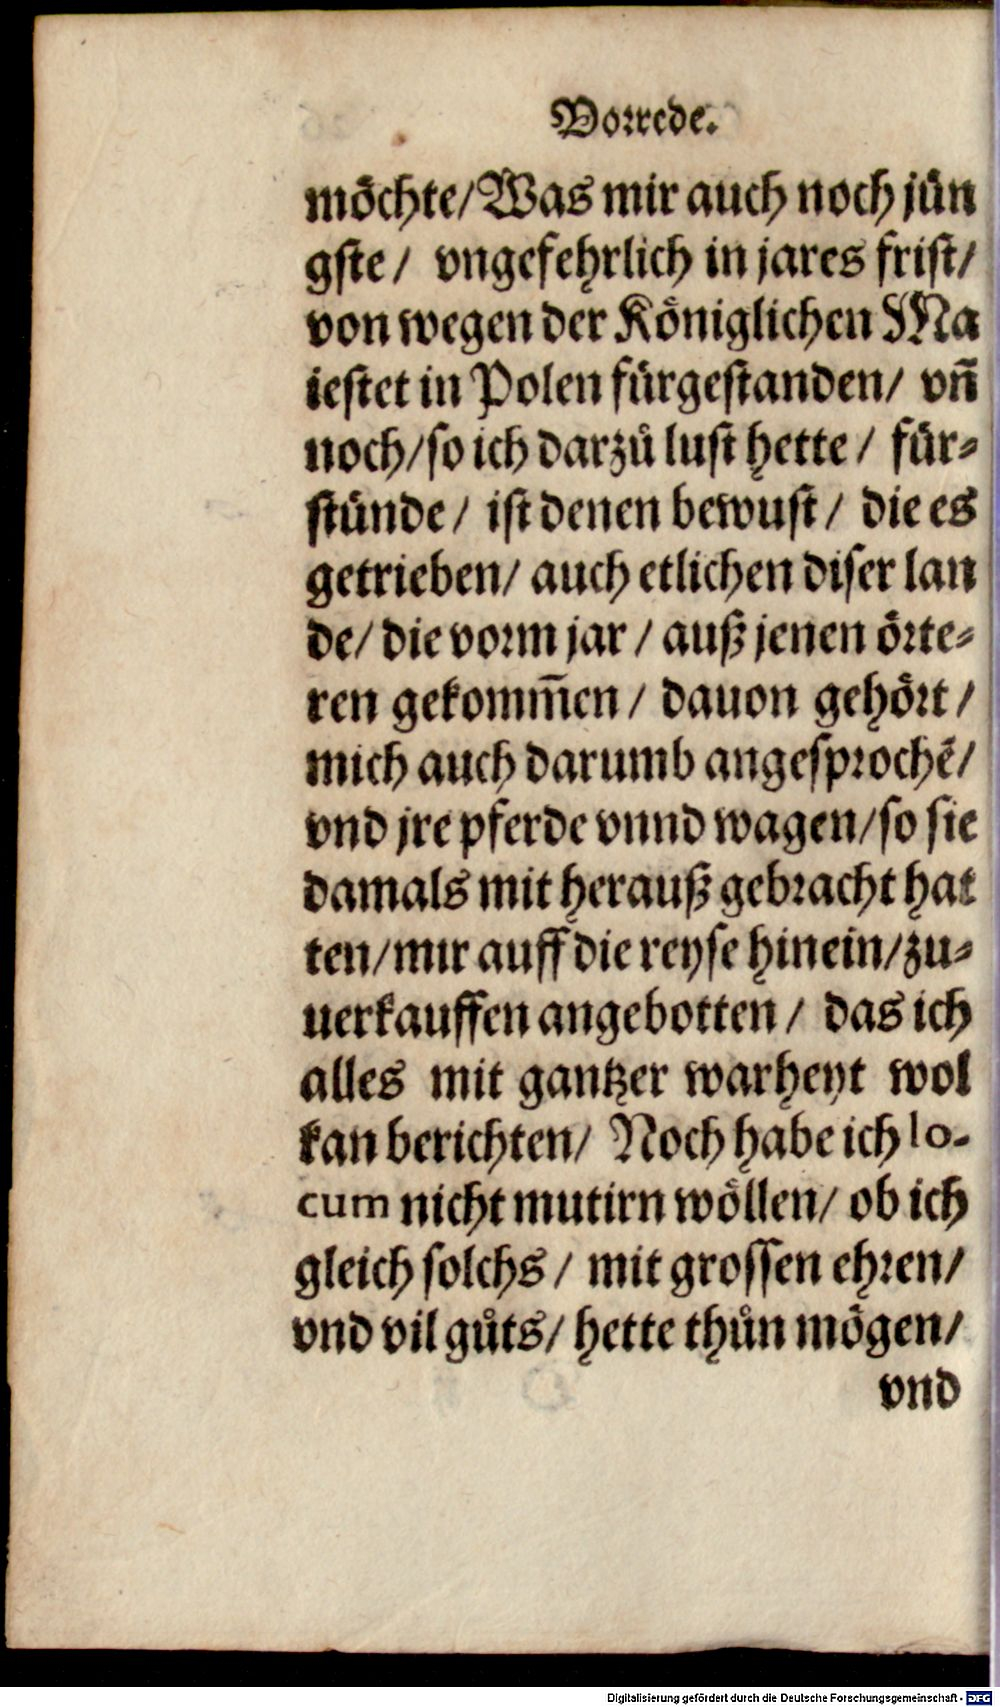 Vorrede.
möchte/ Was mir auch noch jün
gste/ vngefehrlich in jares frist/
von wegen der Königlichen Ma
iestet in Polen fürgestanden/ vñ
noch/ so ich darzů lust hette/ für⸗
stünde/ ist denen bewust/ die es
getrieben/ auch etlichen diser lan
de/ die vorm jar/ auß jenen örte⸗
ren gekom̃en/ dauon gehört/
mich auch darumb angesprochẽ/
vnd jre pferde vnnd wagen/ so sie
damals mit herauß gebracht hat
ten/ mir auff die reyse hinein/ zu⸗
uerkauffen angebotten/ das ich
alles mit gantzer warheyt wol
kan berichten/ Noch habe ich lo-
cum nicht mutirn wöllen/ ob ich
gleich solchs/ mit grossen ehren/
vnd vil gůts/ hette thůn mögen/
vnd
Digitalisierung gefördert durch die Deutsche Forschungsgemeinschaft - DFG